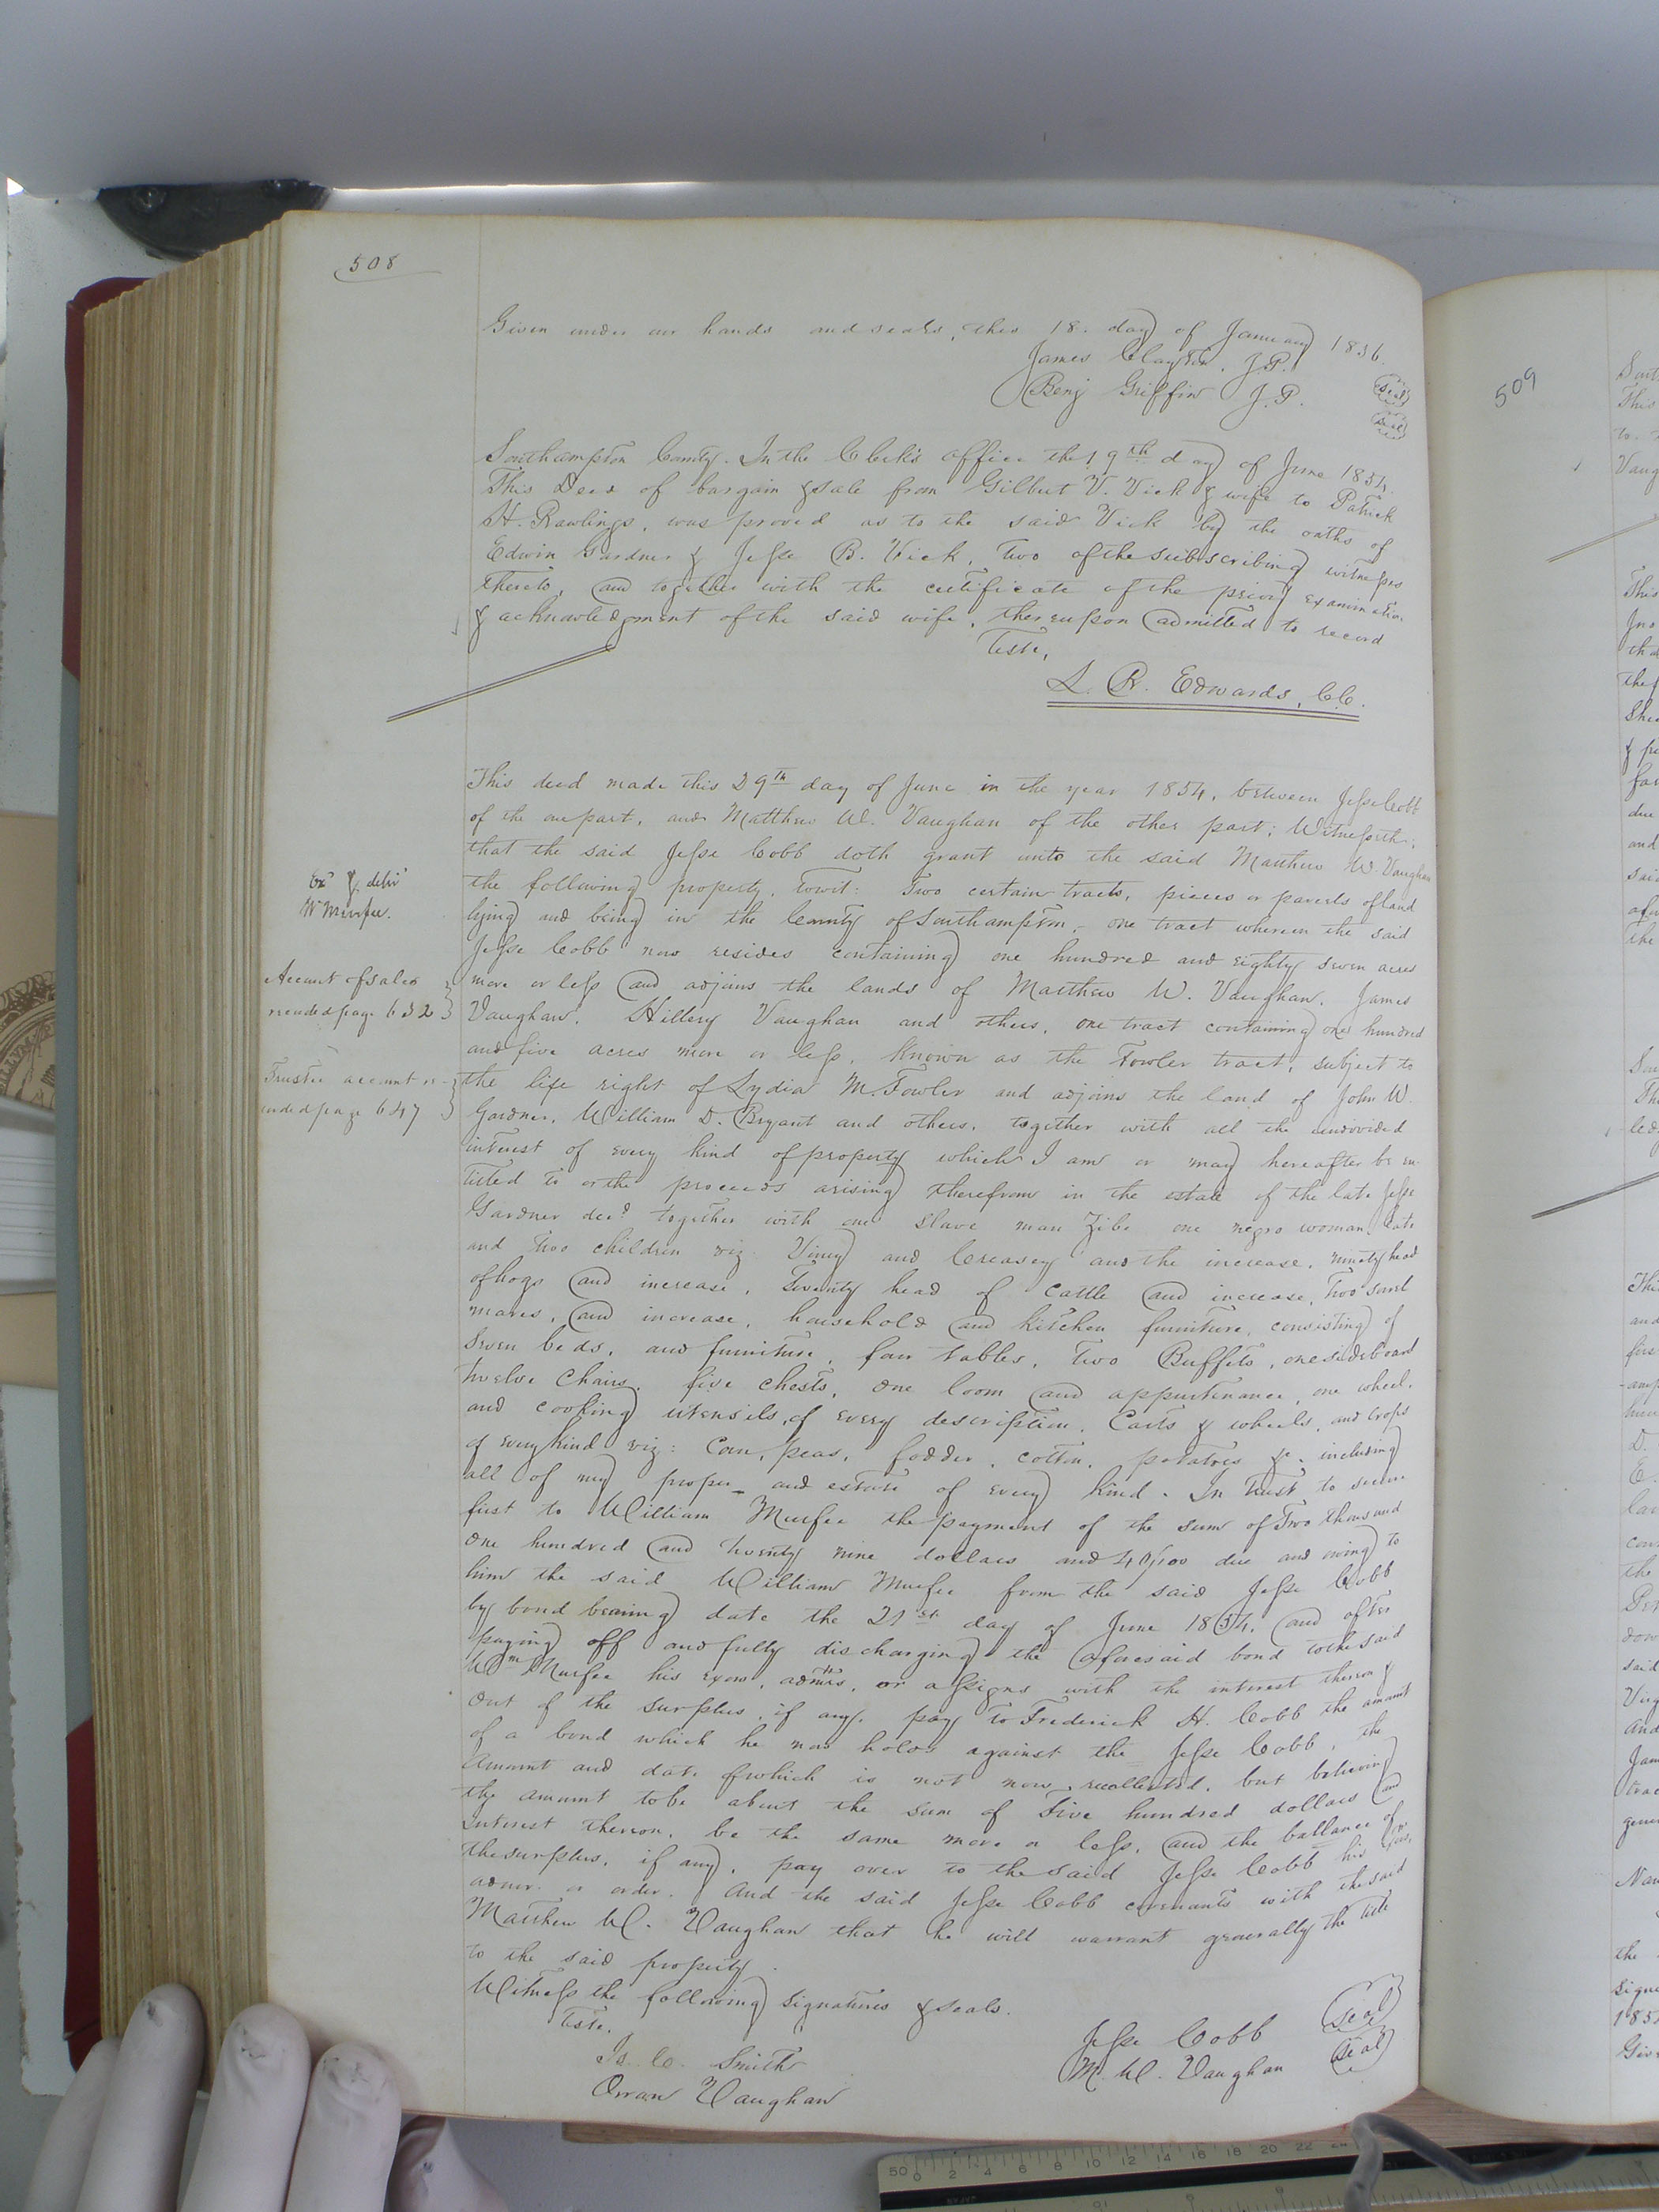 508
Given under our hands and seals, this 18. day of January 1836.
James Clayton, J.P. Seal
Benj Griffin J.P. Seal
Southampton County. In the Clerk's office the 19th day of June 1854.
This Deed of bargain & sale from Gilbert V. Vick & wife to Patrick
H. Rawlings, was proved as to the said Vick by the oaths of
Edwin Gardner & Jesse B. Vick, two of the subscribing witnesses
thereto, and together with the certificate of the privy examination
& acknowledgment of the said wife, thereupon admitted to record
Teste,
L. R. Edwards, C.C.
This deed made this 29th day of June in the year 1854, between Jesse Cobb
of the one part, and Matthew W. Vaughan of the other part; Witnesseth;
that the said Jesse Cobb doth grant unto the said Matthew W. Vaughan
the following property, towit: Two certain tracts, pieces or parcels of land
lying and being in the County of Southampton, one tract wherein the said
Jesse Cobb now resides containing one hundred and eighty seven acres
more or less and adjoins the lands of Matthew W. Vaughan, James
Vaughan, Hillery Vaughan and others, one tract containing one hundred
and five acres more or less, Known as the Fowler tract, subject to
the life right of Lydia M. Fowler and adjoins the land of John W.
Gardner, William D. Bryant and others, together with all the undivided
interest of every kind of property which I am or may hereafter be en-
titled to or the proceeds arising therefrom in the estate of the late Jesse
Gardner decd. together with one slave man Zibe one negro woman
and two children viz: Viney and Creasey and the increase, ninety head
of hogs and increase, Twenty head of cattle and increase, Two sorrel
mares, and increase, household and kitchen furniture, consisting of
seven beds, and furniture, four tables, Two Buffets, one sideboard
twelve chairs, five chests, one loom and appurtenance, one wheel,
and cooking utensils, of every description, Carts & wheels, and crops
of every kind viz: Corn, peas, fodder, cotton, potatoes &c. including
all of my proper and estate of every kind. In trust to secure
first to William Murfee the payment of the sum of Two thousand
one hundred and twenty nine dollars and 40/100 due and owing to
him the said William Murfee from the said Jesse Cobb
by bond bearing date the 21st day of June 1854, and after
paying off and fully discharging the aforesaid bond to the said
Wm Murfee his exors, admrs, or assigns with the interest thereon &
out of the surplus, if any, pay to Frederick H. Cobb the amount
of a bond which he now holds against the Jesse Cobb, the
amount and date of which is not now recollected, but believing
the amount to be about the sum of Five hundred dollars and
interest thereon, be the same more or less, and the ballance of
the surplus, if any, pay over to the said Jesse Cobb his exors,
admr. or order. And the said Jesse Cobb covenants with the said
Matthew W. Vaughan that he will warrant generally the title
to the said property.
Witness the following signatures & seals.
Teste,
Jesse Cobb Seal
Smith
M. W. Vaughan Seal
Orran Vaughan
Exd & delivd
W Murfee.
Account of sales
recorded page 632
Trustee account re-
corded page 647
509